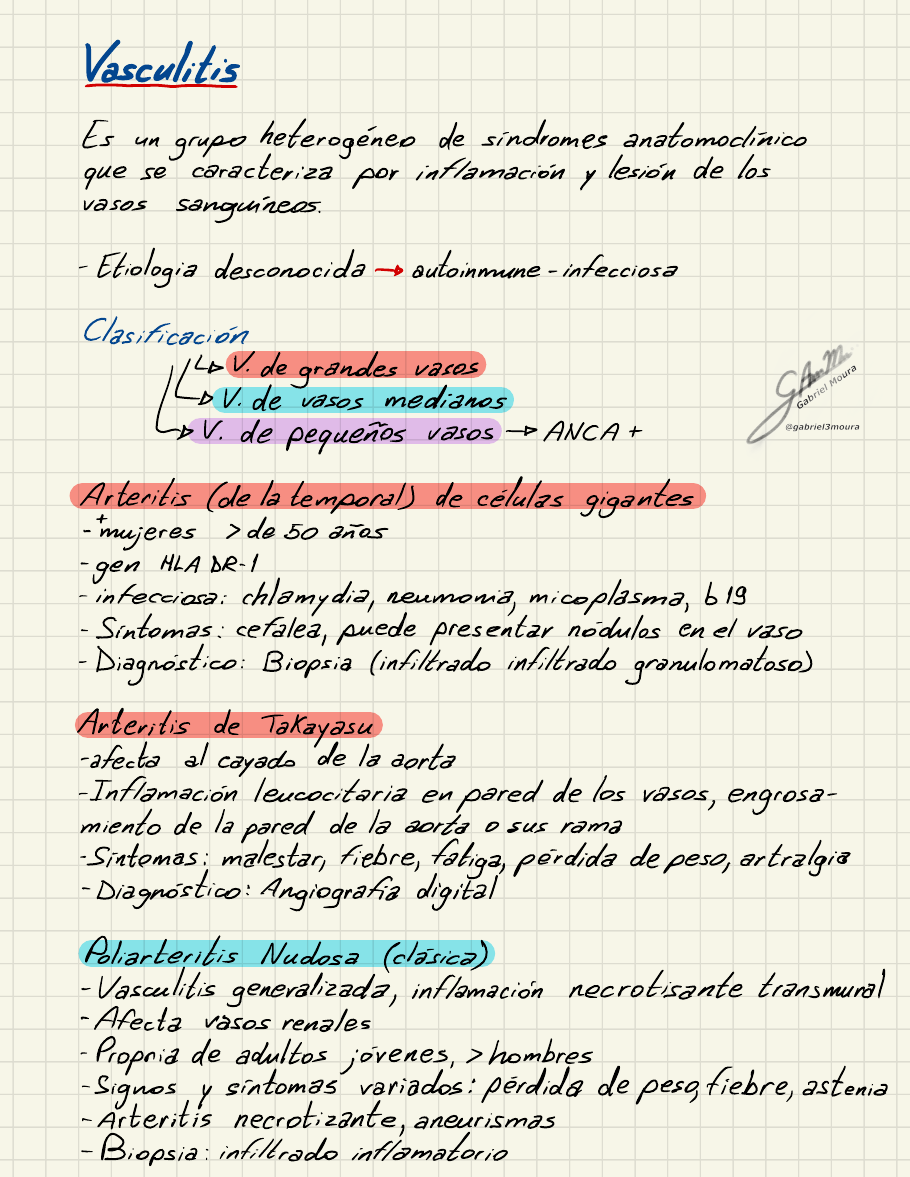 Vasculitis
Es un grupo heterogéneo de síndromes anatomoclínico
que se caracteriza por inflamación y lesión de los
vasos sanguíneos.
- Etiologia desconocida → autoinmune - infecciosa
Clasificación
V. de grandes vasos
V. de vasos medianos
V. de pequeños vasos → ANCA +
Gabriel Moura
@gabriel3moura
Arteritis (de la temporal) de células gigantes
- +mujeres > de 50 años
- gen HLA DR-1
- infecciosa: chlamydia, neumonia, micoplasma, b19
- Síntomas: cefalea, puede presentar nódulos en el vaso
- Diagnóstico: Biopsia (infiltrado infiltrado granulomatoso)
Arteritis de Takayasu
- afecta al cayado de la aorta
- Inflamación leucocitaria en pared de los vasos, engrosa-
miento de la pared de la aorta o sus rama
- Síntomas: malestar, fiebre, fatiga, pérdida de peso, artralgia
- Diagnóstico: Angiografía digital
Poliarteritis Nudosa (clásica)
- Vasculitis generalizada, inflamación necrotisante transmural
- Afecta vasos renales
- Propria de adultos jóvenes, > hombres
- Signos y síntomas variados: pérdida de peso, fiebre, astenia
- Arteritis necrotizante, aneurismas
- Biopsia: infiltrado inflamatorio